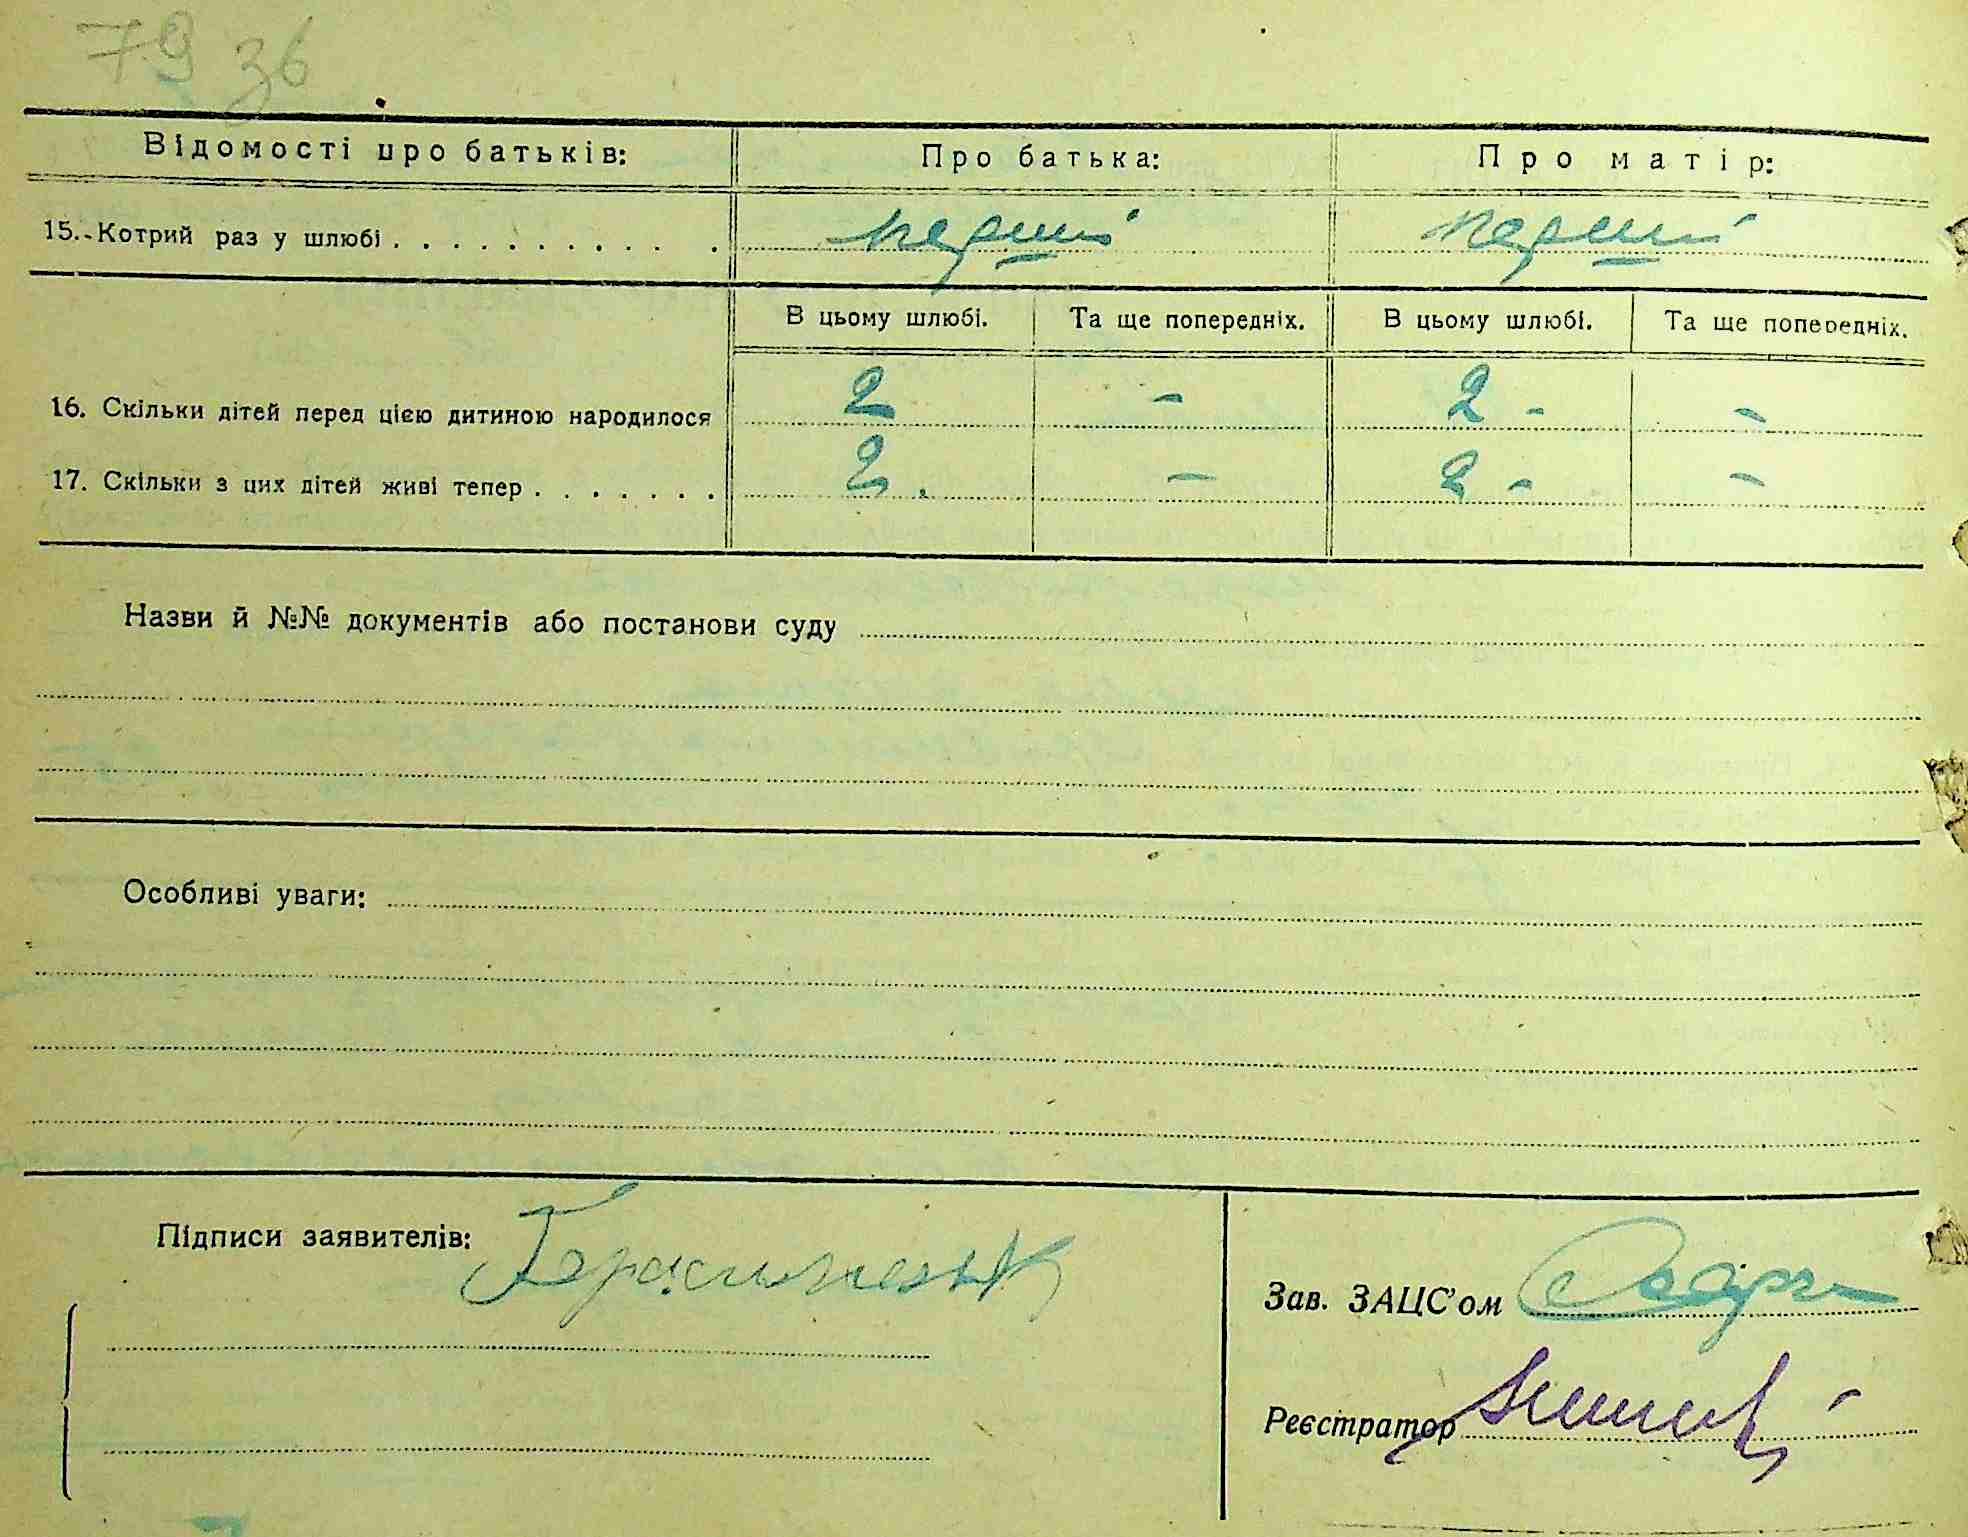 79 зб
Відомості про батьків: Про батька: Про матір:
15. Котрий раз у шлюбі . . . . . . . . . . . перший перший
В цьому шлюбі. Та ще попередніх. В цьому шлюбі. Та ще попередніх.
16. Скільки дітей перед цією дитиною народилося 2 - 2 - -
17. Скільки з цих дітей живі тепер . . . . . . . 2. - 2 - -
Назви й №№ документів або постанови суду
Особливі уваги:
Підписи заявителів:
Зав. ЗАЦС'ом
Реєстратор